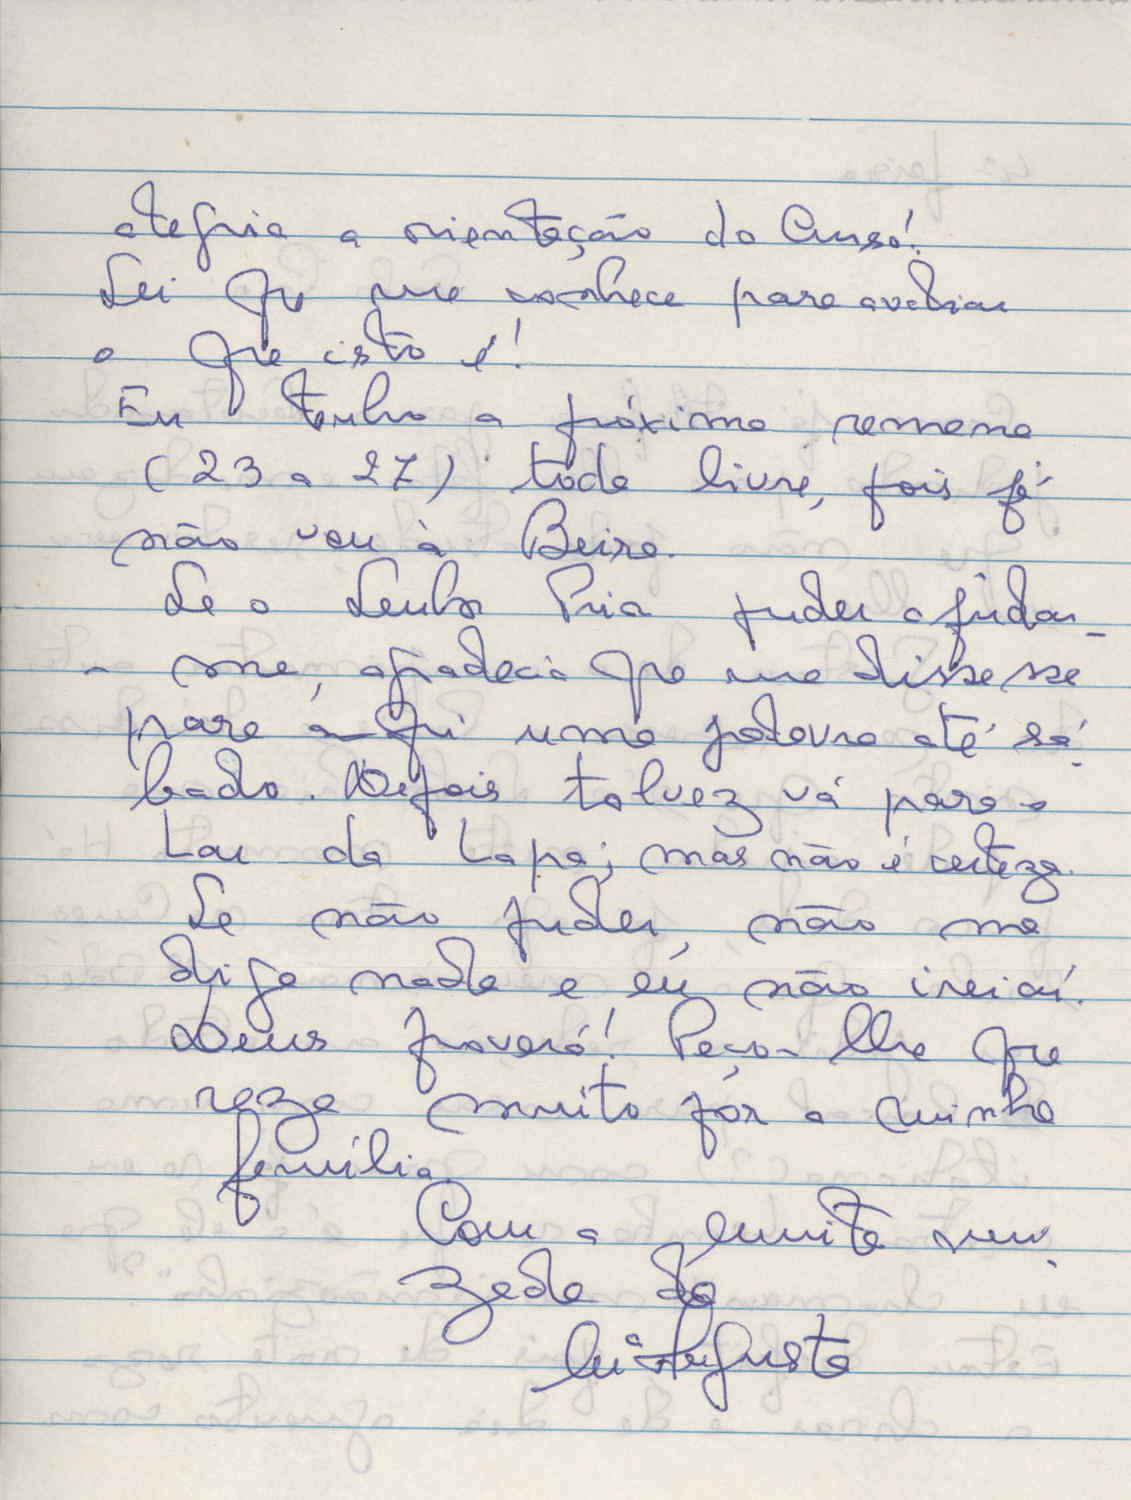 alegria a orientação do Curso!
Sei que me conhece para avaliar
o que isto é!
Eu tenho a próxima semana
(23 a 27) toda livre, pois já
não vou à Beira.
Se o Senhor Prior puder ajudar-
- me, agradecia que me dissesse
para aqui uma palavra até sá-
bado. Depois talvez vá para o
Lar da Lapa; mas não é certeza.
Se não puder, não me
diga nada e eu não irei aí.
Deus proverá! Peço-lhe que
reze muito por a minha
família.
Com a muita ami-
zade da
Mª Augusta